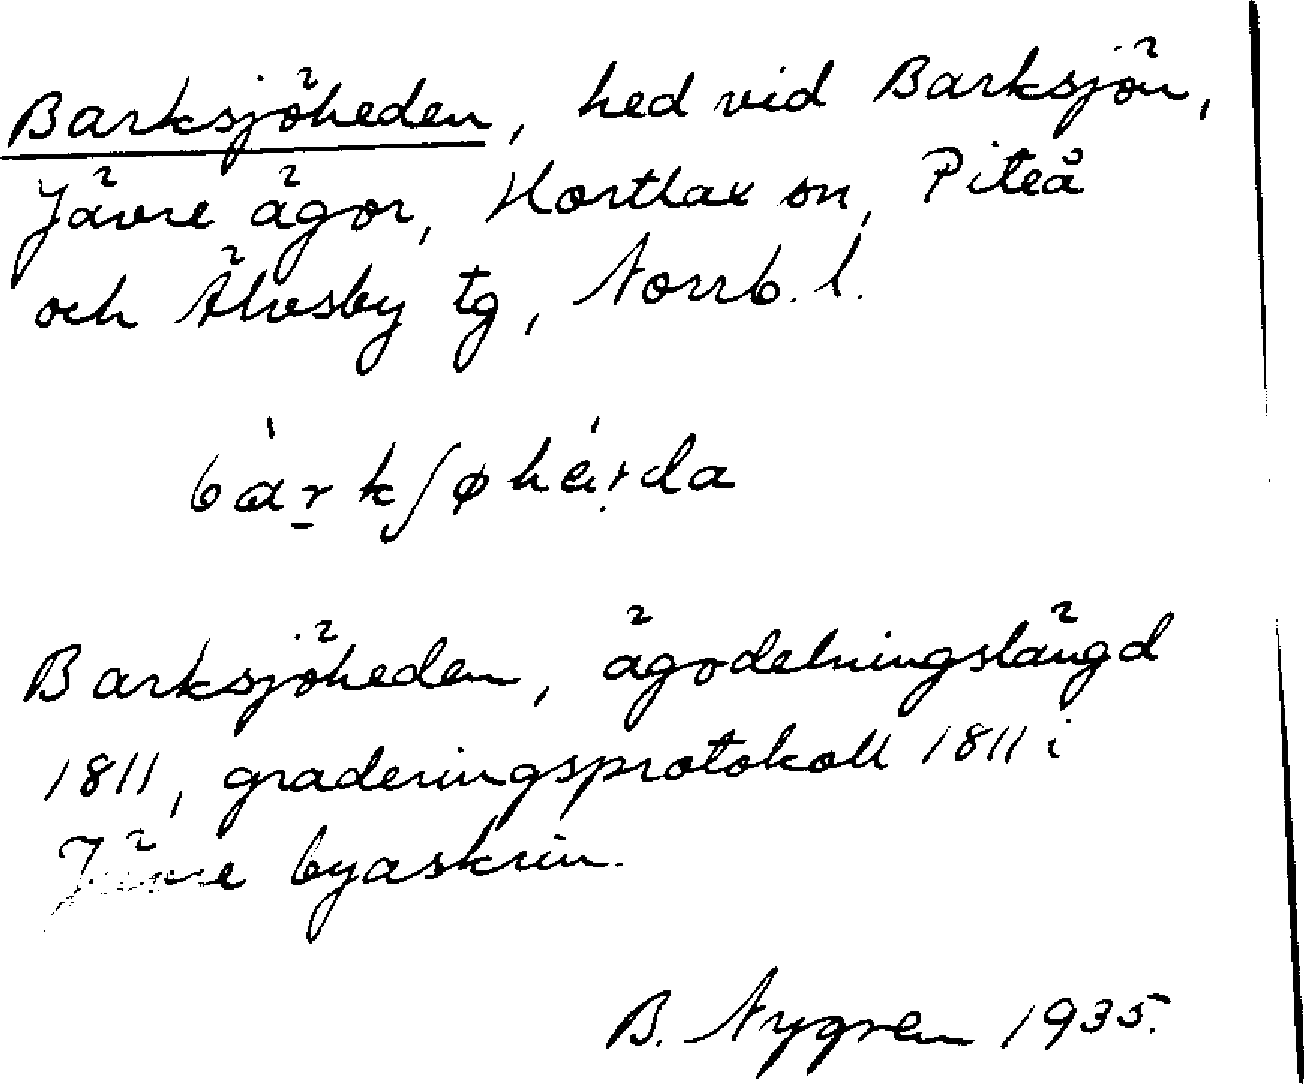 Barksjöheden, hed vid Barksjön,
Jävre ägor, Hortlax sn, Piteå
och Älvsby tg, Norrb. l.
Barksjöheden, ägodelningslängd
1811, graderingsprotokoll 1811 i
Jävre byaskrin.
B. Nygren 1935.